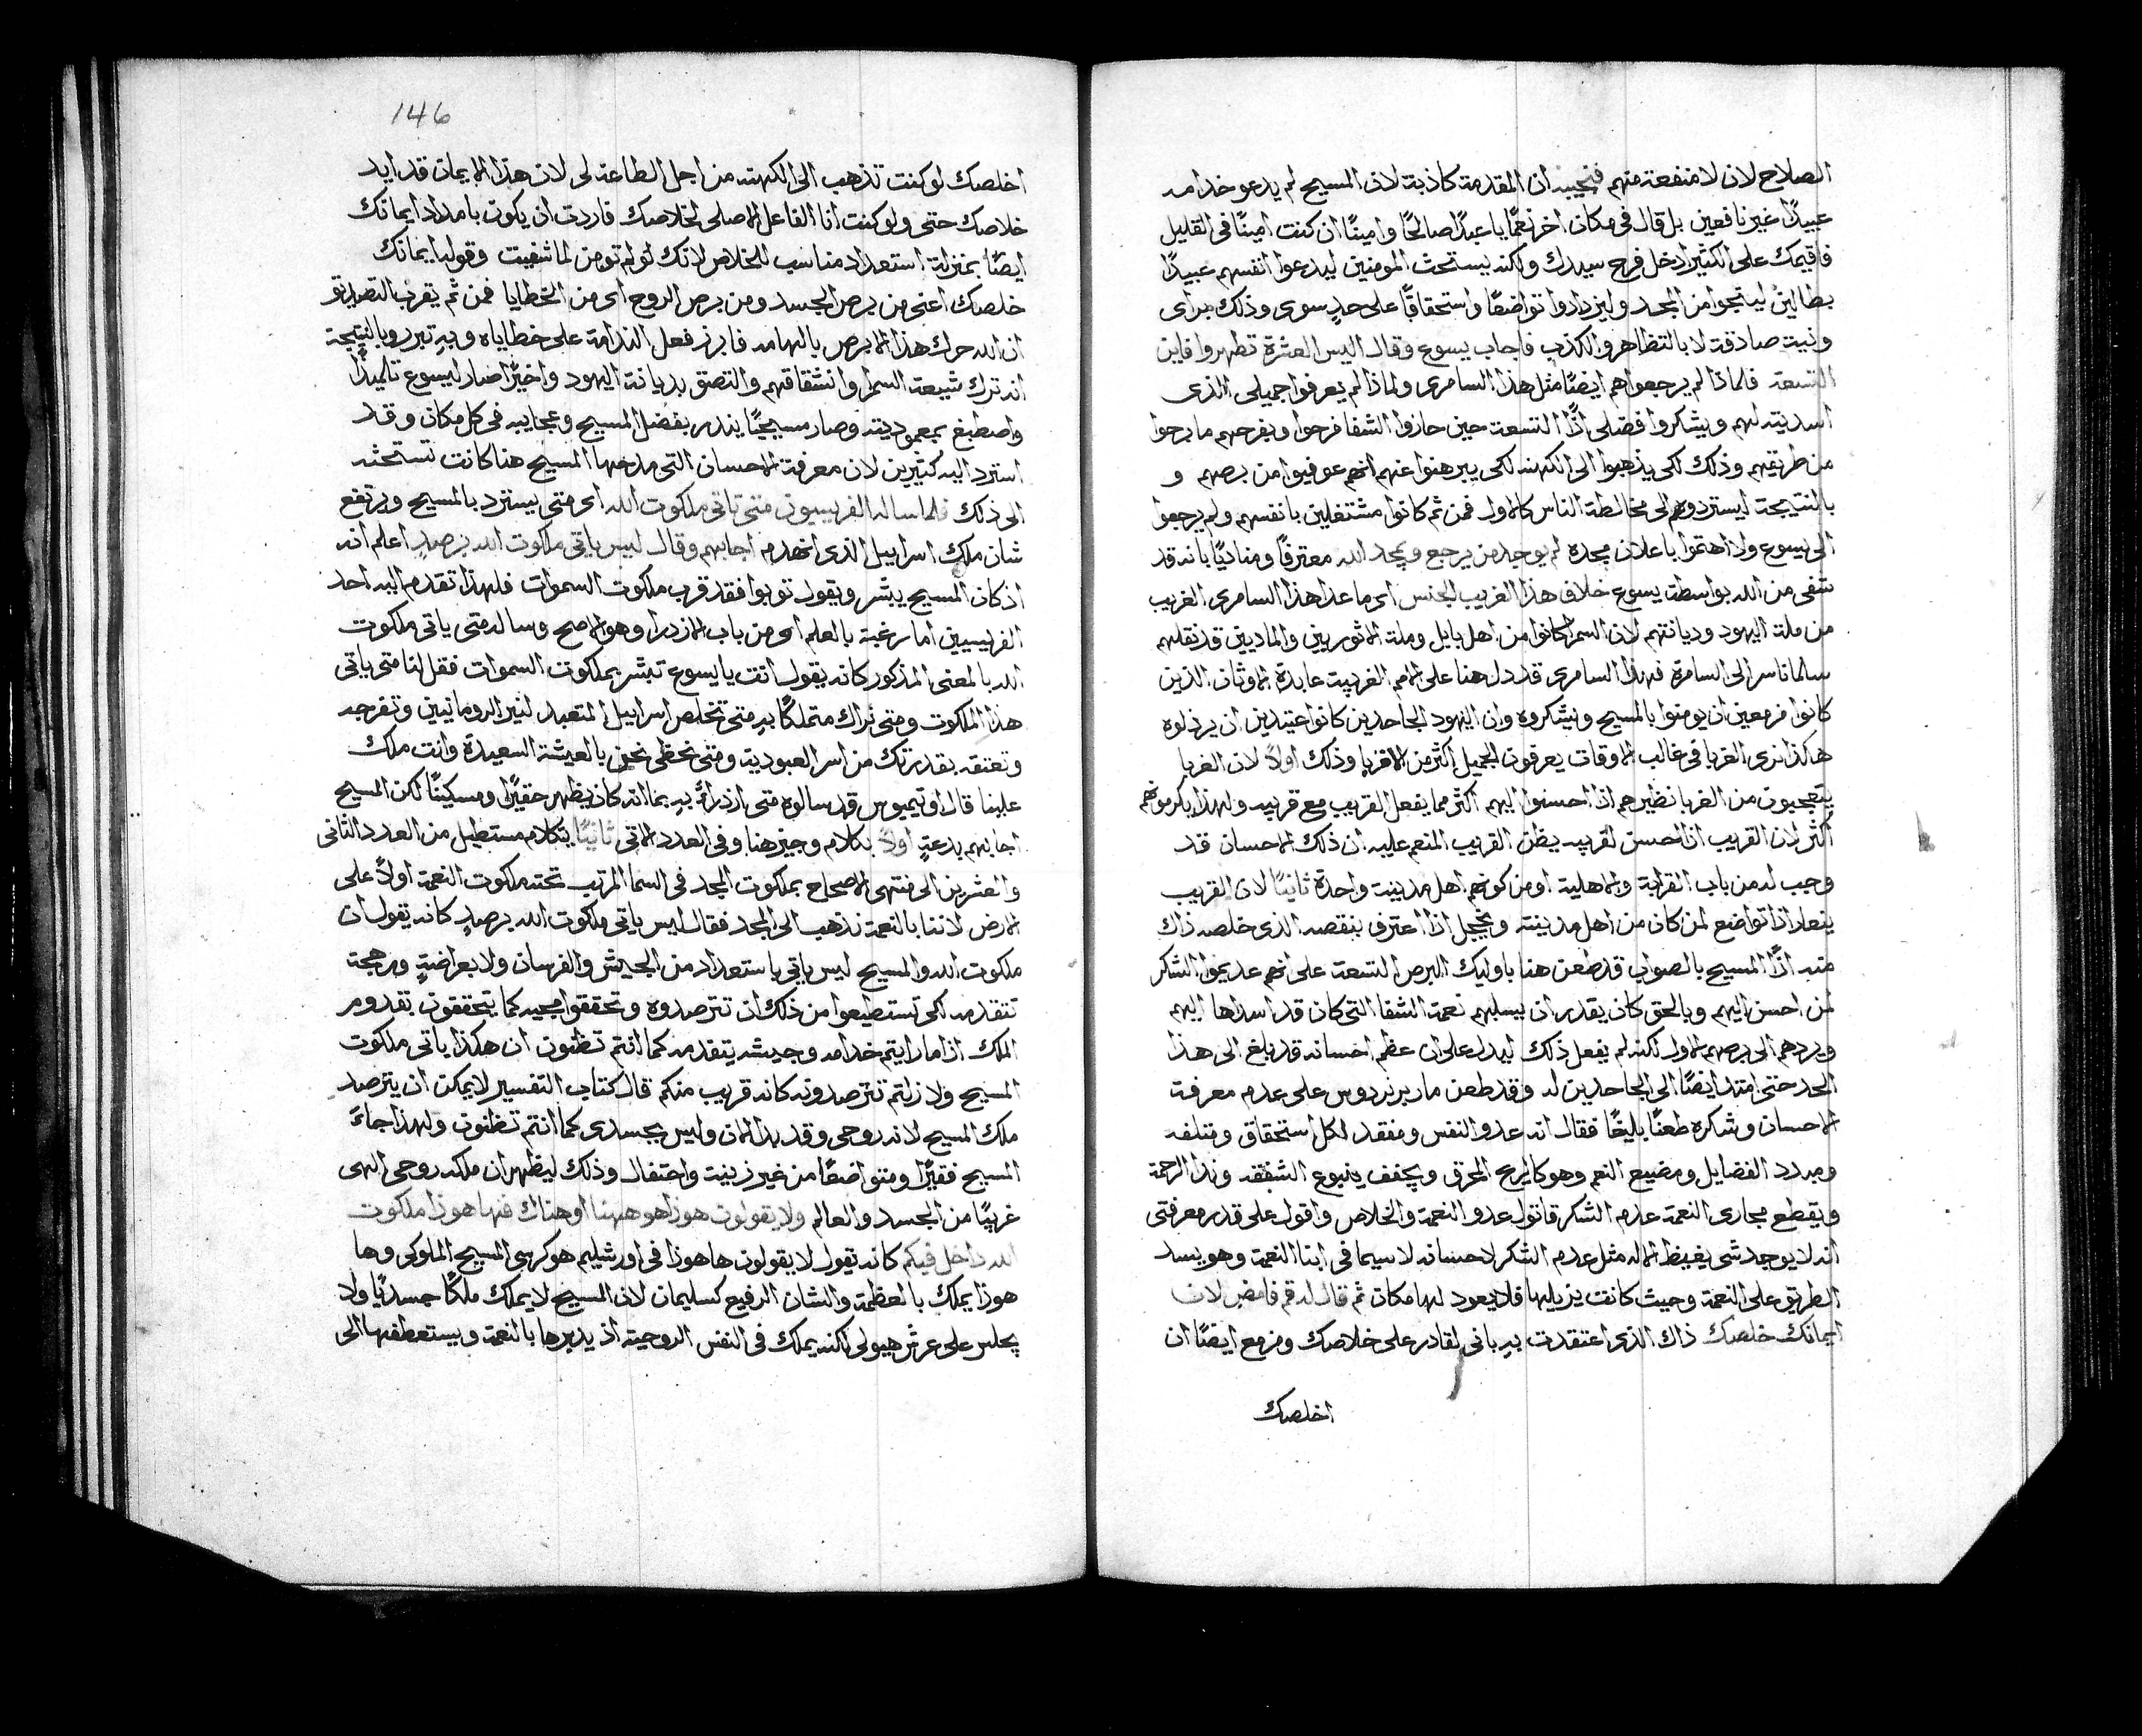 الصلاح لان لا منفعة منهم فنجيبه ان المقدمة كاذبة لان المسيح لم يدعو خدامه
عبيدًا غير نافعين بل قال في مكان اخر نعمًا يا عبدًا صالحًا وامينًا ان كنت امينًا في القليل
فاقيمك على الكثير ادخل فرح سيدك ولكنه يستحث المومنين ليدعوا انفسهم عبيدًا
بطالين لينجوا من المجد وليزدادوا تواضعًا واستحقاقًا على حدٍ سوى وذلك براى
ونيت صادقة لا بالتظاهر والكذب فاجاب يسوع وقال اليس العشرة تطهروا فاين
التسعة فلماذا لم يرجعوا هم ايضًا مثل هذا السامرى ولماذا لم يعرفوا جميلى الذى
اسديته لهم ويشكروا فضلى اذًا التسعة حين حازوا الشفا فرحوا وبفرحهم ما برحوا
من طريقهم وذلك لكى يذهبوا الى الكهنه لكى يبرهنوا عنهم انهم عوفيوا من برصهم و
بالنتيجة ليستردوهم الى مخالطة الناس كالاول فمن ثم كانوا مشتغلين بانفسهم ولم يرجعوا
الى يسوع ولا اهتموا باعلان مجده لم يوجد من يرجع ويمجد الله معترفًا ومناديًا بانه قد
شفى من الله بواسطة يسوع خلاف هذا الغريب الجنس اى ما عدا هذا السامرى الغريب
من ملة اليهود وديانتهم لان السمرا كانوا من اهل بابل وملة الاثوريين والماديين قد نقلهم
سلمناسر الى السامرة فهذا السامرى قد دل هنا على الامم الغريبة عابدة الاوثان الذين
كانوا مزمعين ان يومنوا بالمسيح ويشكروه وان اليهود الجاحدين كانوا عتيدين ان يرذلوه
هكذا نرى الغربا في غالب الاوقات يعرفون الجميل اكثر من الاقربا وذلك اولاً لان الغربا
يتعجبون من الغربا نظيرهم اذا احسنوا اليهم اكثر مما يفعل القريب مع قريبه ولهذا يكرمونهم
اكثر لان القريب اذا احسن لقريبه يظن القريب المنعم عليه ان ذلك الاحسان قد
وجب له من باب القرابة والاهلية او من كونهم اهل مدينة واحدة ثانيًا لان القريب
اذا تواضع لمن كان من اهل مدينته ويخجل اذا اعترف بنقصه الذى خلصه ذاك
منه اذًا المسيح بالصواب قد طعن هنا باوليك البرص التسعة على انهم عديموا الشكر
لمن احسن اليهم وبالحق كان يقدر ان يسلبهم نعمة الشفا التى كان قد اسداها اليهم
ويردهم الى برصهم الاول لكنه لم يفعل ذلك ليدل على ان عظم احسانه قد بلغ الى هذا
الحد حتى امتد ايضًا الى الجاحدين له وقد طعن مار برنردوس على عدم معرفة
الاحسان وشكره طعنًا بليغًا فقال انه عدو النفس ومفقد لكل استحقاق ومتلفه
ومبدد الفضايل ومضيع النعم وهو كالريح المحرق ويجفف ينبوع الشفقه وندا الرحمة
ويقطع مجارى النعمة عدم الشكر قاتول عدو النعمة والخلاص واقول على قدر معرفتى
انه لا يوجد شى يغيظ الاله مثل عدم الشكر لاحسانه لا سيما في ابنا النعمة وهو يسد
الطريق على النعمة وحيث كانت يزيلها فلا يعود لها مكان ثم قال له قم فامض لان
ايمانك خلصك ذاك الذى اعتقدت به بانى لقادر على خلاصك ومزمع ايضًا ان
اخلصك
146
اخلصك لو كنت تذهب الى الكهنه من اجل الطاعة لى لان هذا الايمان قد ايد
خلاصك حتى ولو كنت انا الفاعل الاصلى لخلاصك فاردت ان يكون بامداد ايمانك
ايضًا بمنزلة استعداد مناسب للخلاص لانك لو لم تومن لما شفيت وقوله ايمانك
خلصك اعنى من برص الجسد ومن برص الروح اى من الخطايا فمن ثم يقرب التصديق
ان الله حرك هذا الابرص بالهامه فابرز فعل الندامة على خطاياه وبه تبرر وبالنتيجة
انه ترك شيعة السمرا وانشقاقهم والتصق بديانة اليهود واخيرًا صار ليسوع تلميذًا
واصطبغ بمعموديته وصار مسيحيًا ينذر بفضل المسيح وعجايبه في كل مكان وقد
استرد اليه كثيرين لان معرفة الاحسان التى مدحها المسيح هنا كانت تستحثه
الى ذلك فلما ساله الفريسيون متى تاتى ملكوت الله اى متى يسترد بالمسيح ويرتفع
شان ملك اسراييل الذى انهدم اجابهم وقال ليس ياتى ملكوت الله برصدٍ اعلم انه
اذ كان المسيح يبشر ويقول توبوا فقد قرب ملكوت السموات فلهذا تقدم اليه احد
الفريسيين اما رغبة بالعلم اى من باب الازدرا وهو الاصح وساله متى ياتى ملكوت
الله بالمعنى المذكور كانه يقول انت يا يسوع تبشر بملكوت السموات فقل لنا متى ياتى
هذا الملكوت ومتى نراك متملكًا به متى تخلص اسراييل المتعبد لنير الرومانيين وتفرجه
وتعتقه بقدرتك من اسر العبودية ومتى نحظى نحن بالعيشة السعيدة وانت ملك
علينا قال اوتيميوس قد سالوه متى ازدراءً به بما انه كان يظهر حقيرًا ومسكينًا لكن المسيح
اجابهم بدعةٍ اولاً بكلام وجيز هنا وفي العدد الاتى ثانيًا بكلام مستطيل من العدد الثانى
والعشرين الى منتهى الاصحاح بملكوت المجد في السما المرتب تحته ملكوت النعمة اولاً على
الارض لاننا بالنعمة نذهب الى المجد فقال ليس ياتى ملكوت الله برصدٍ كانه يقول ان
ملكوت الله والمسيح ليس ياتى باستعداد من الجيش والفرسان ولا بعراضةٍ ورهجة
تتقدمه لكى تستطيعوا من ذلك ان تترصدوه وتحققوا مجيه كما تتحققون بقدوم
الملك اذا ما رايتم خدامه وجيشه يتقدمه كما انتم تظنون ان هكذا ياتى ملكوت
المسيح ولا زلتم تترصدونه كانه قريب منكم قال كتاب التفسير لا يمكن ان يترصد
ملك المسيح لانه روحى وقد بدا الان وليس بجسدى كما انتم تظنون ولهذا جاءَ
المسيح فقيرًا ومتواضعًا من غير زينة واحتفال وذلك ليظهر ان ملكه روحى الهى
غريبًا من الجسد والعالم ولا يقولون هوذا هو ههنا او هناك فها هوذا ملكوت
الله داخل فيكم كانه يقول لا يقولون ها هوذا في اورشليم هو كرسى المسيح الملوكى وها
هوذا يملك بالعظمة والشان الرفيع كسليمان لان المسيح لا يملك ملكًا جسديًا ولا
يجلس على عرش هيولى لكنه يملك في النفس الروحية اذ يدبرها بالنعمة ويستعطفها الى